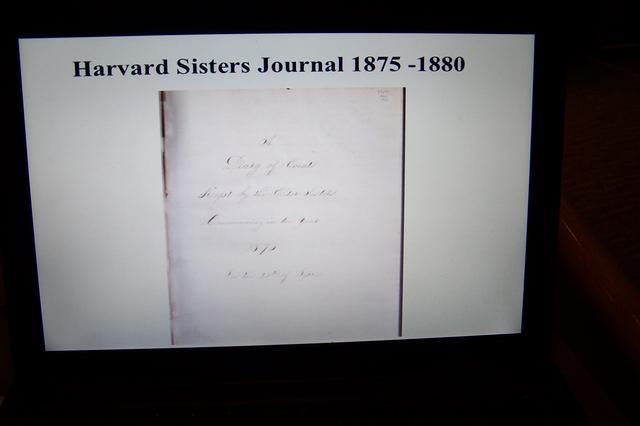 Harvard Sisters Journal 1875 -1880
A
Diary of Events
Kept by the
Commencing in the Year
1875
of